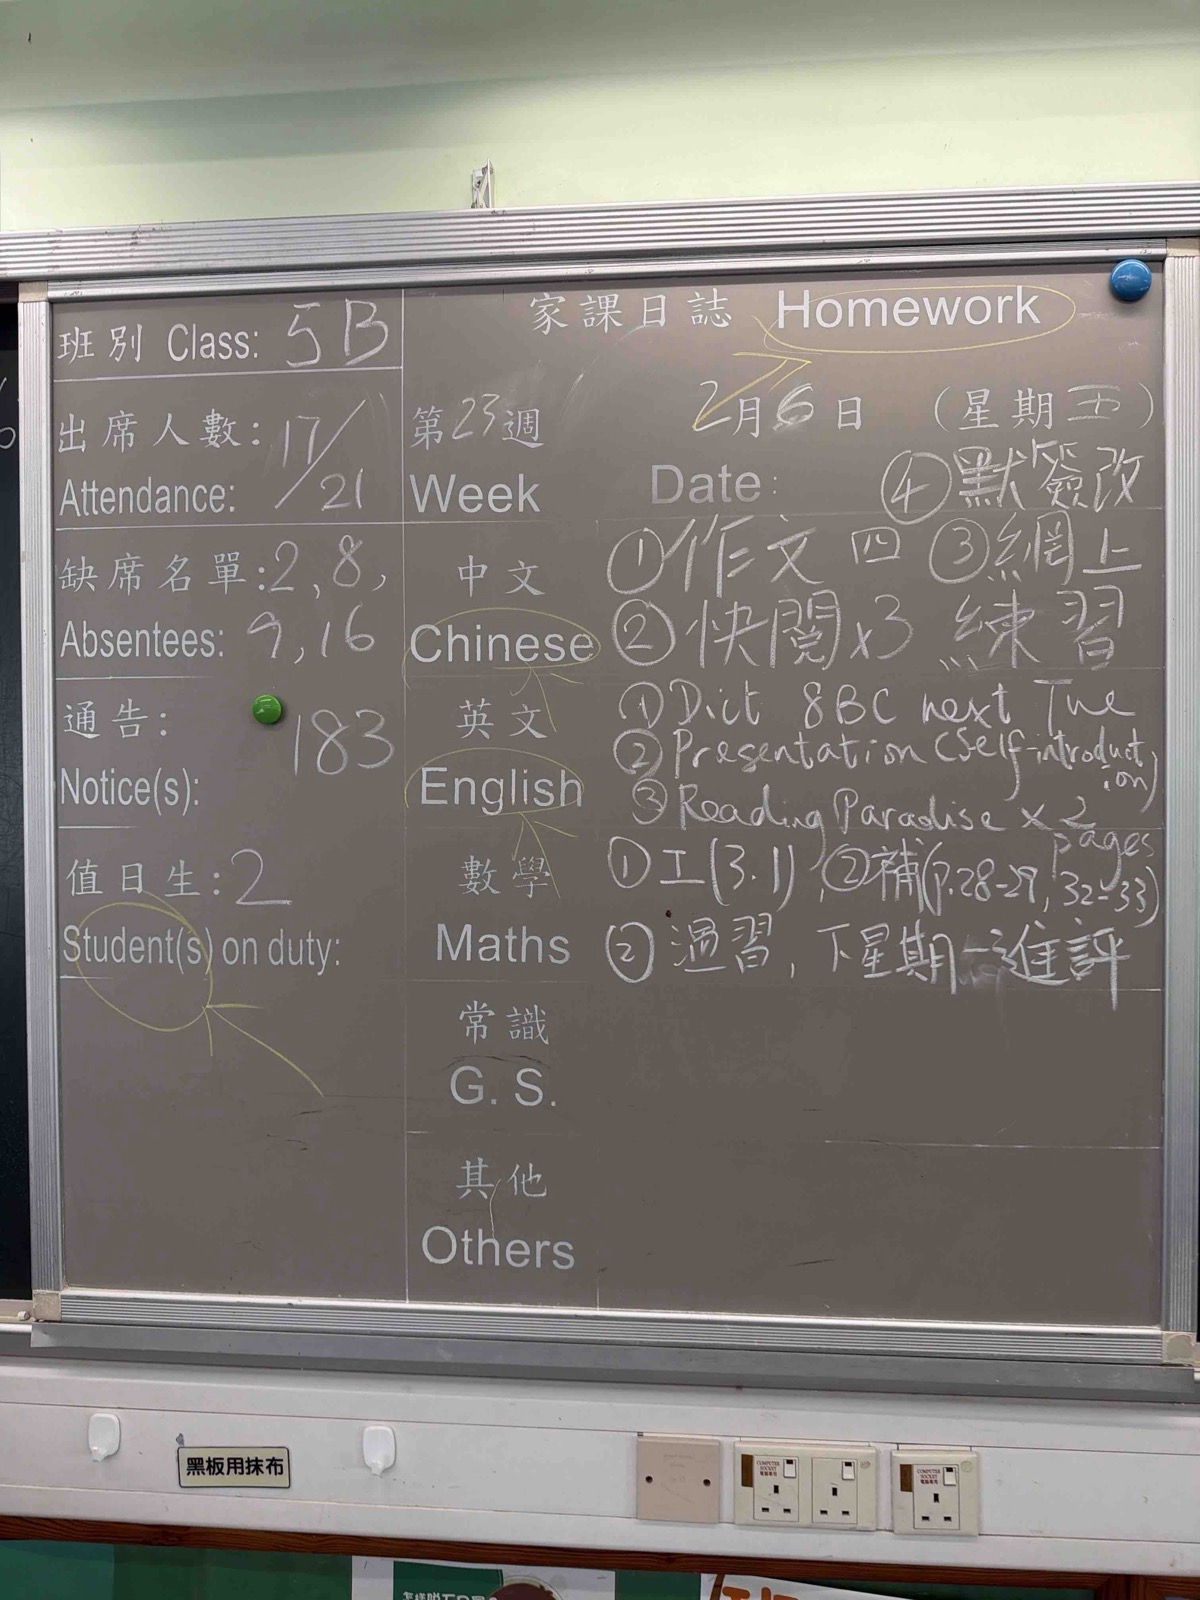 班別 Class: 5B
出席人數: 17/21
Attendance:
缺席名單: 2, 8,
Absentees: 9, 16
通告: 183
Notice(s):
值日生: 2
Student(s) on duty:
家課日誌 Homework
第23週 2月6日 (星期五)
Week Date:
④默簽改
中文 ①作文四 ③網上
Chinese ②快閱x3 練習
英文 ①Dict 8BC next Tue
②Presentation (Self-introduction)
English ③Reading Paradise x 2 pages
數學 ①工(3.1), ②補(p.28-29, 32-33)
Maths ②溫習, 下星期一進評
常識
G. S.
其他
Others
黑板用抹布
COMPUTER SOCKET 電腦專用
COMPUTER SOCKET 電腦專用